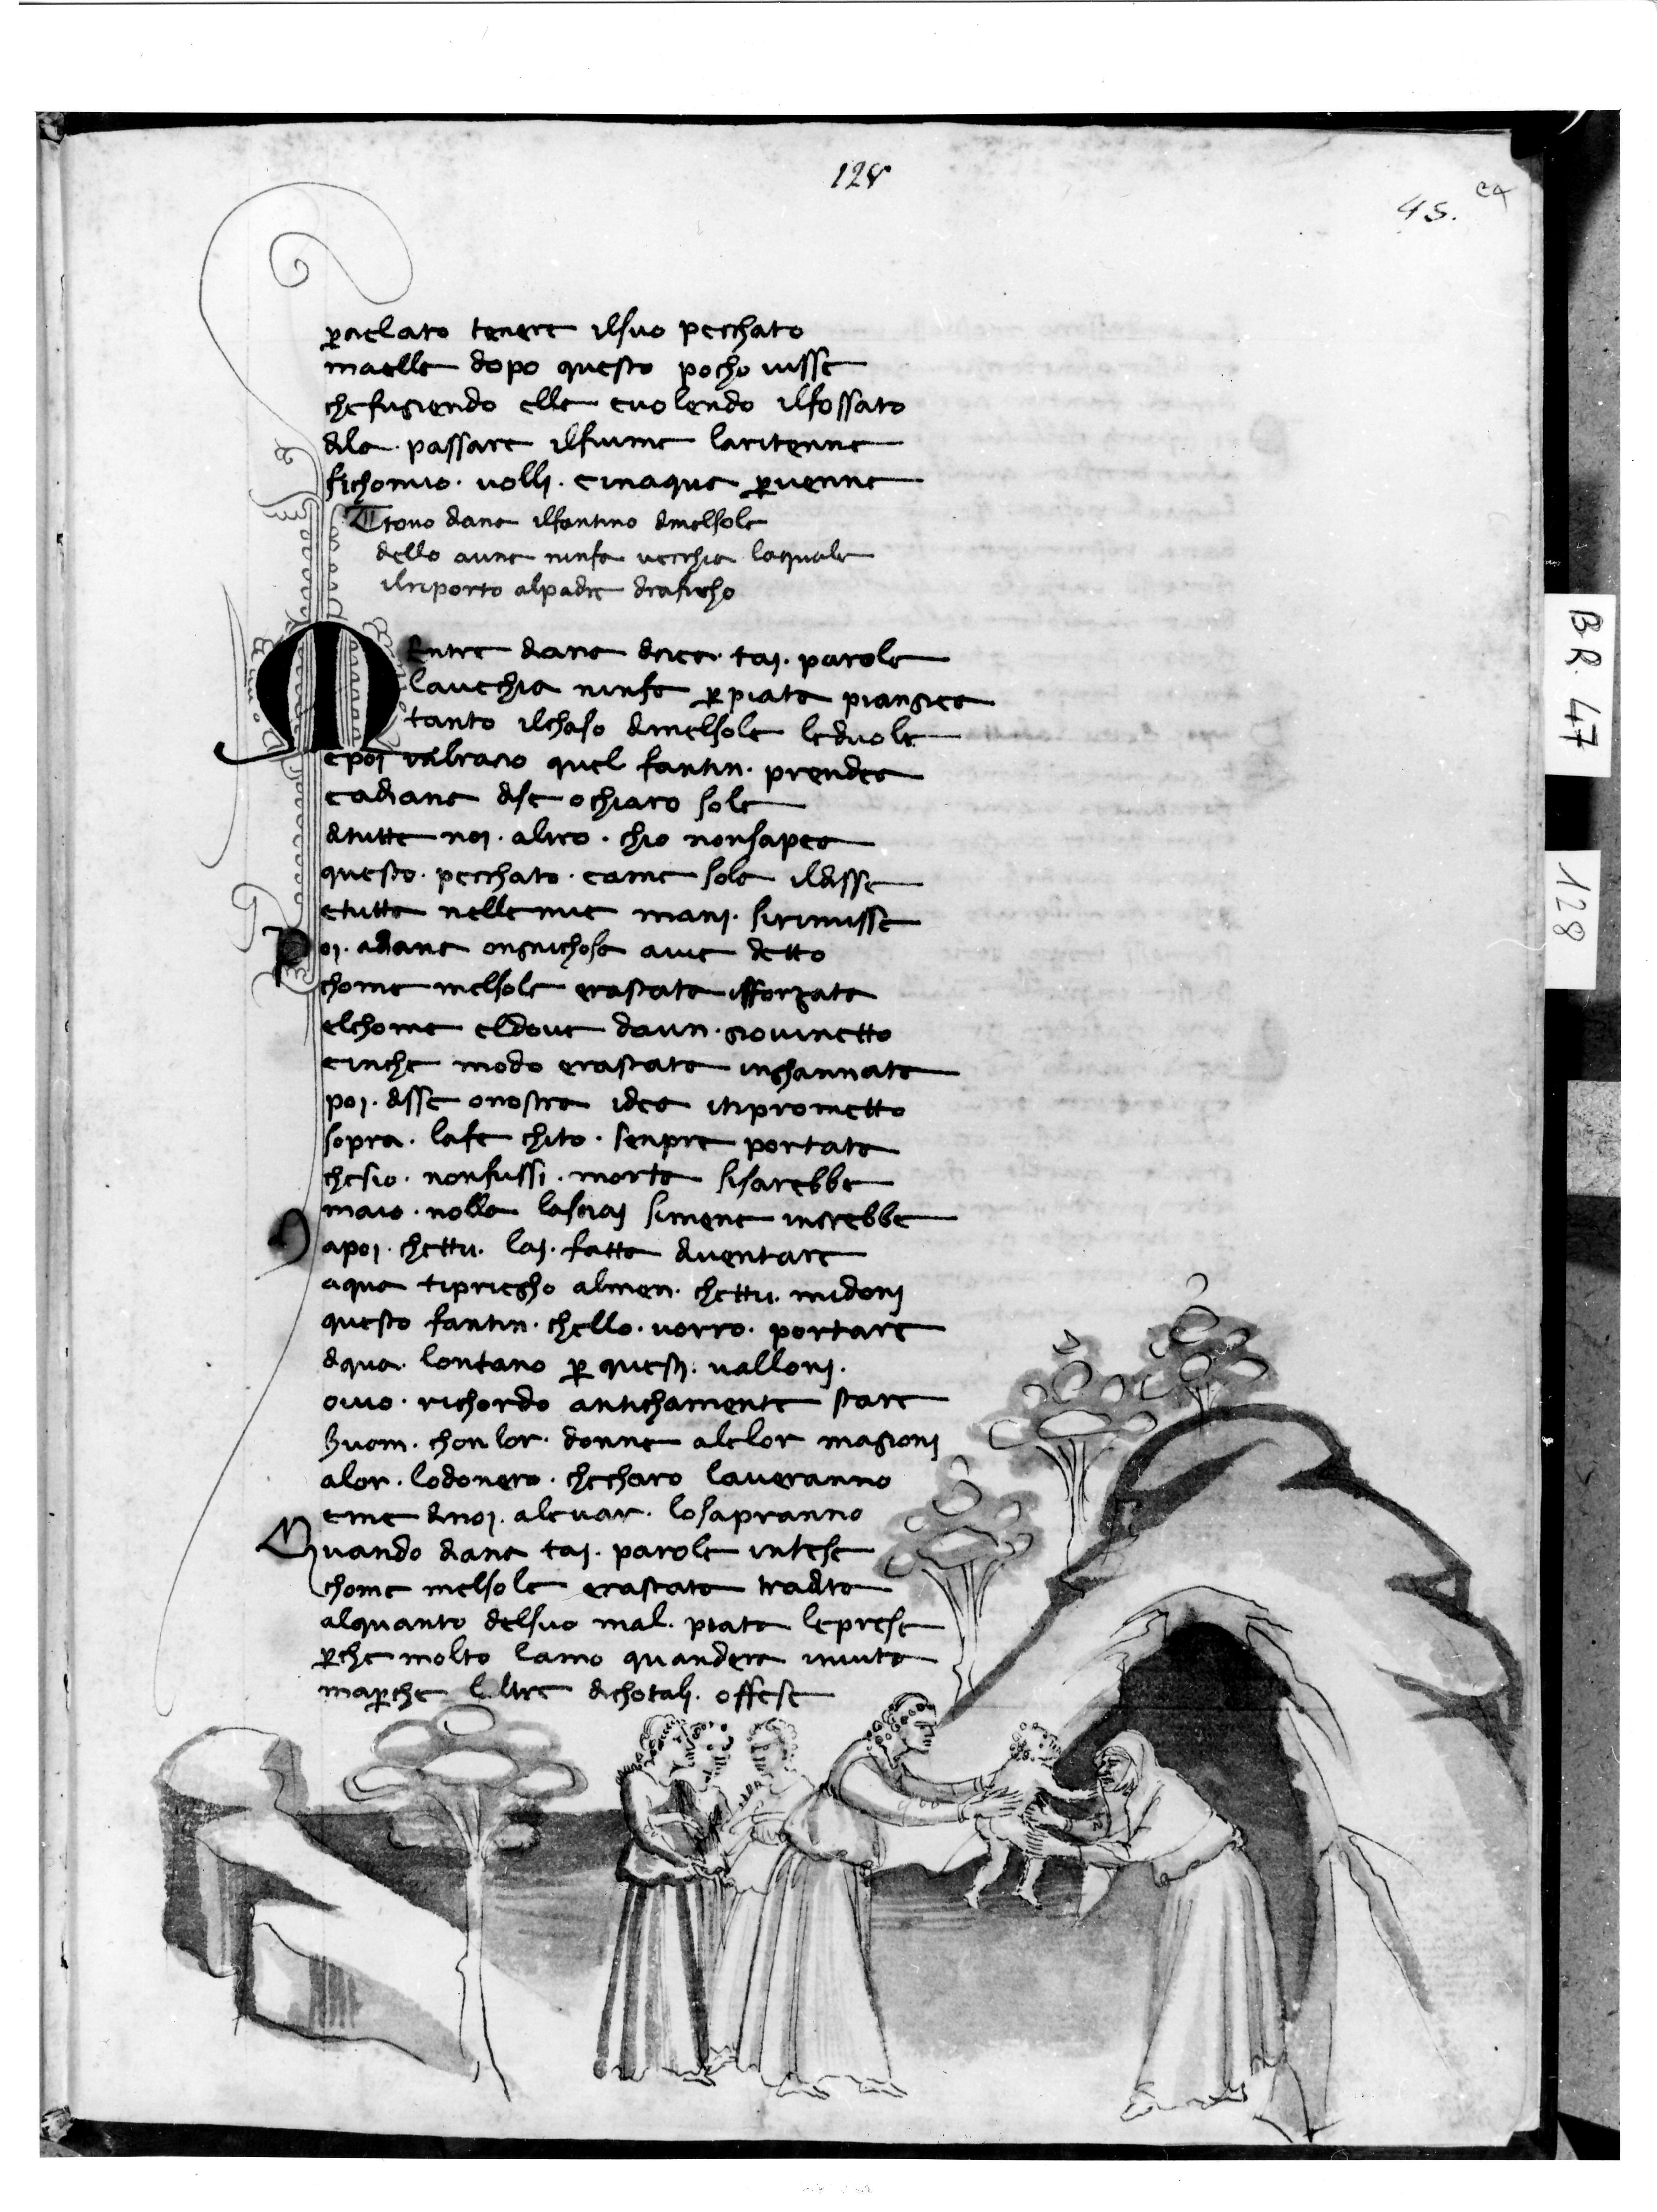 128
45.
ꝑcielato tenere ilsuo pecchato
maella dopo questo pocho uisse
chefugiendo ella euolendo ilfossato
dila passare ilfiume laritenne
sichomio · uolli · einaqua ꝑuenne
Trouo diana ilfantino dimelsola
dello auna ninfa uecchia laquale
ilriporto alpadre daficho
Mentre diana dicea · taj · parole
lauechia ninfa ꝑ piata piangiea
tanto ilchaso dimelsola leduole
epoj inbracio quel fantin · prendea
eadiana dise o chiaro sole
ditutte noj · altro · chio nonsapea
questo · pecchato · eame sola ildisse
etutta nellemie manj · sirimisse
Poj · adiana ongnichosa auie detto
chome melsola erastata isforzata
elchome eldoue daun · giouinetto
einche modo erastata inghannata
poj · disse onostra idea itiprometto
sopra · lafe chito · senpre portata
chesio · nonfussi · morta sisarebbe
maio · nolla lasciaj simene increbbe
Dapoj · chettu · laj · fatta diuentare
aqua tipriegho almen · chettu · midonj
questo fantin · chello · uorro · portare
diqua · lontano ꝑ questj · uallonj ·
ouio · richordo antichamente stare
huom · chonlor · donne alelor magionj
alor · lodonero · checharo laueranno
eme dinoj · aleuar · losapranno
Quando diana taj · parole intese
chome melsola erastata tradita
alquanto delsuo mal · piata leprese
ꝑche molto lamo quandera inuita
maꝑche laltre dichotalj · offese
BR 47
128